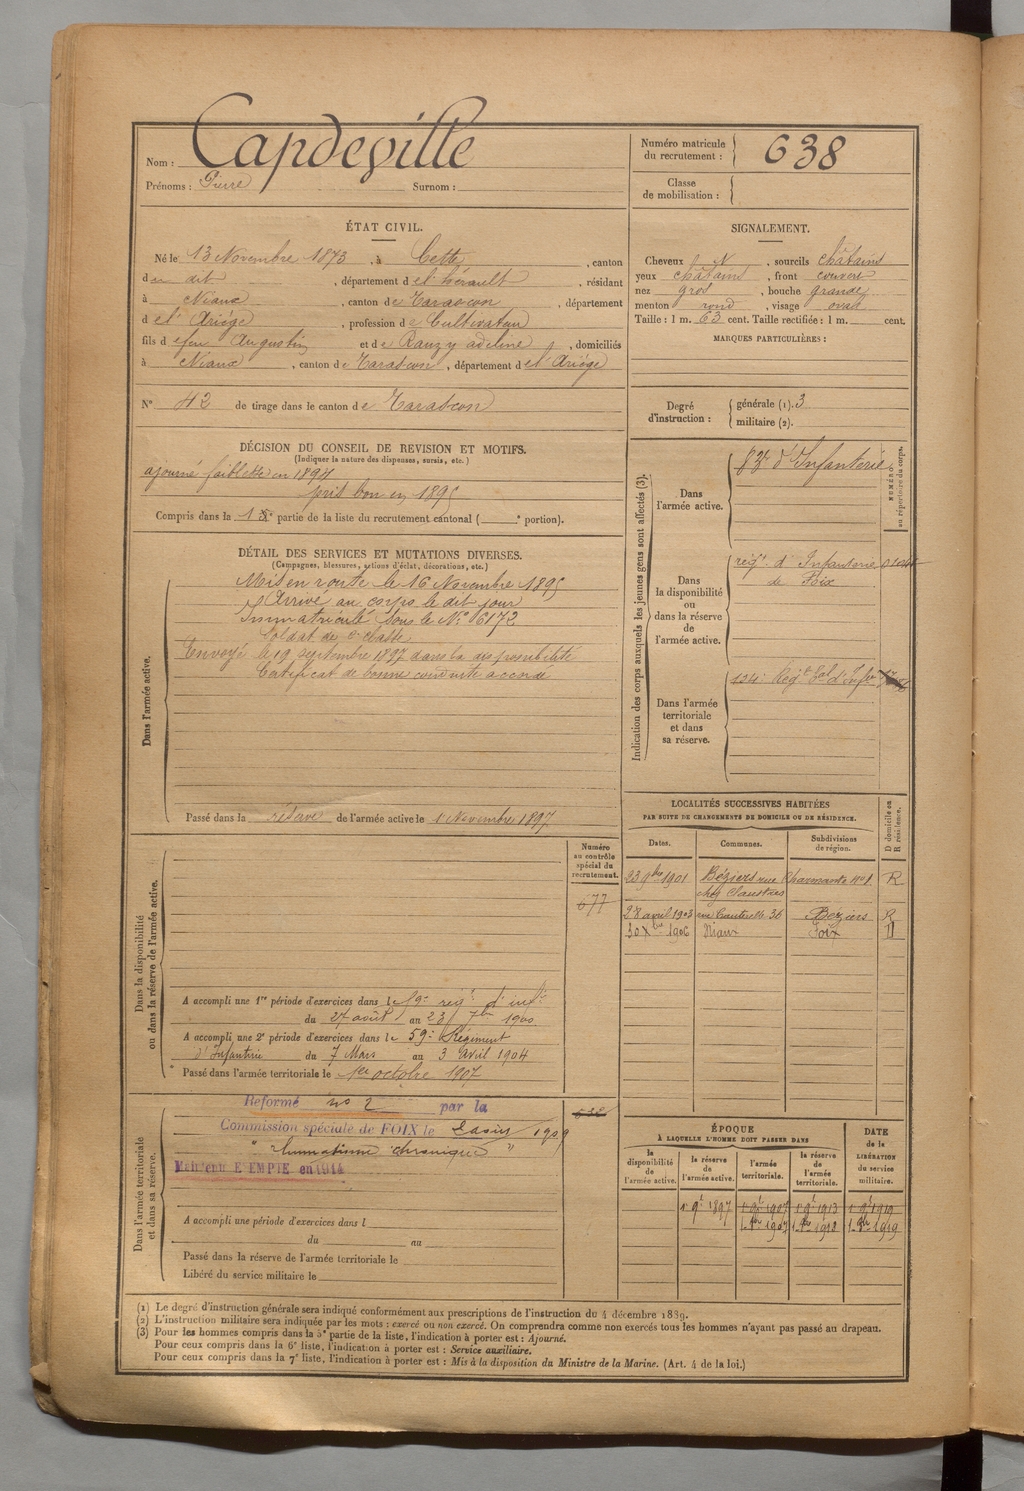 Nom : Capdeville
Prénoms : Pierre Surnom :
Numéro matricule du recrutement : 638
Classe de mobilisation :
ÉTAT CIVIL.
Né le 13 Novembre 1873, à Cette, canton
du dit, département de l'hérault, résidant
à Niaux, canton de Tarascon, département
de l'Ariège, profession de Cultivateur
fils de feu Augustin et de Rauzy adeline, domiciliés
à Niaux, canton de Tarascon, département de l'Ariège
N° 42 de tirage dans le canton de Tarascon
SIGNALEMENT.
Cheveux N, sourcils châtains
yeux châtains, front couvert
nez gros, bouche grande
menton rond, visage oval
Taille : 1 m. 63 cent. Taille rectifiée : 1 m. cent.
MARQUES PARTICULIÈRES :
Degré d'instruction : générale (1). 3
militaire (2).
DÉCISION DU CONSEIL DE REVISION ET MOTIFS.
(Indiquer la nature des dispenses, sursis, etc.)
ajourné faiblesse en 1894
pris bon en 1895
Compris dans la partie de la liste du recrutement cantonal ( e portion).
DÉTAIL DES SERVICES ET MUTATIONS DIVERSES.
(Campagnes, blessures, actions d'éclat, décorations, etc.)
Dans l'armée active.
Mis en route le 16 Novembre 1895
Arrivé au corps le dit jour
Immatriculé sous le N° 6172
Soldat de 2e classe
Envoyé le 19 septembre 1897 dans la disponibilité
Certificat de bonne conduite accordé
Passé dans la réserve de l'armée active le 1 Novembre 1897
Indication des corps auxquels les jeunes gens sont affectés (3).
NUMÉRO au répertoire du corps.
Dans l'armée active.
d'Infanterie
Dans la disponibilité ou dans la réserve de l'armée active.
régt. d'Infanterie
de Foix
Dans l'armée territoriale et dans sa réserve.
134e Régt Tal d'Infie
LOCALITÉS SUCCESSIVES HABITÉES
PAR SUITE DE CHANGEMENTS DE DOMICILE OU DE RÉSIDENCE.
Dates. Communes. Subdivisions de région. D domicile ou R résidence.
23 9bre 1901 Béziers rue Charmante N° 1 R
chez
28 avril 1903 rue 36 Béziers R
30 Xbre 1906 Niaux Foix D
Dans la disponibilité ou dans la réserve de l'armée active.
Numéro au contrôle spécial du recrutement.
677
A accompli une 1re période d'exercices dans le régt d'infie
du 27 août au 23 7bre 1900
A accompli une 2e période d'exercices dans le 59e Régiment
d'Infanterie du 7 Mars au 3 avril 1904
Passé dans l'armée territoriale le 1er octobre 1907
Dans l'armée territoriale et dans sa réserve.
Réformé n° 2 par la
Commission spéciale de FOIX le 1909
"rhumatisme chronique"
Maintenu EXEMPTÉ en 1914
A accompli une période d'exercices dans l
du au
Passé dans la réserve de l'armée territoriale le
Libéré du service militaire le
ÉPOQUE
À LAQUELLE L'HOMME DOIT PASSER DANS
DATE de la LIBÉRATION du service militaire.
la disponibilité de l'armée active. la réserve de l'armée active. l'armée territoriale. la réserve de l'armée territoriale.
1 9e 1897 1 9e 1907 1 9e 1913 1 9e 1919
(1) Le degré d'instruction générale sera indiqué conformément aux prescriptions de l'instruction du 4 décembre 1889.
(2) L'instruction militaire sera indiquée par les mots : exercé ou non exercé. On comprendra comme non exercés tous les hommes n'ayant pas passé au drapeau.
(3) Pour les hommes compris dans la 5e partie de la liste, l'indication à porter est : Ajourné.
Pour ceux compris dans la 6e liste, l'indication à porter est : Service auxiliaire.
Pour ceux compris dans la 7e liste, l'indication à porter est : Mis à la disposition du Ministre de la Marine. (Art. 4 de la loi.)